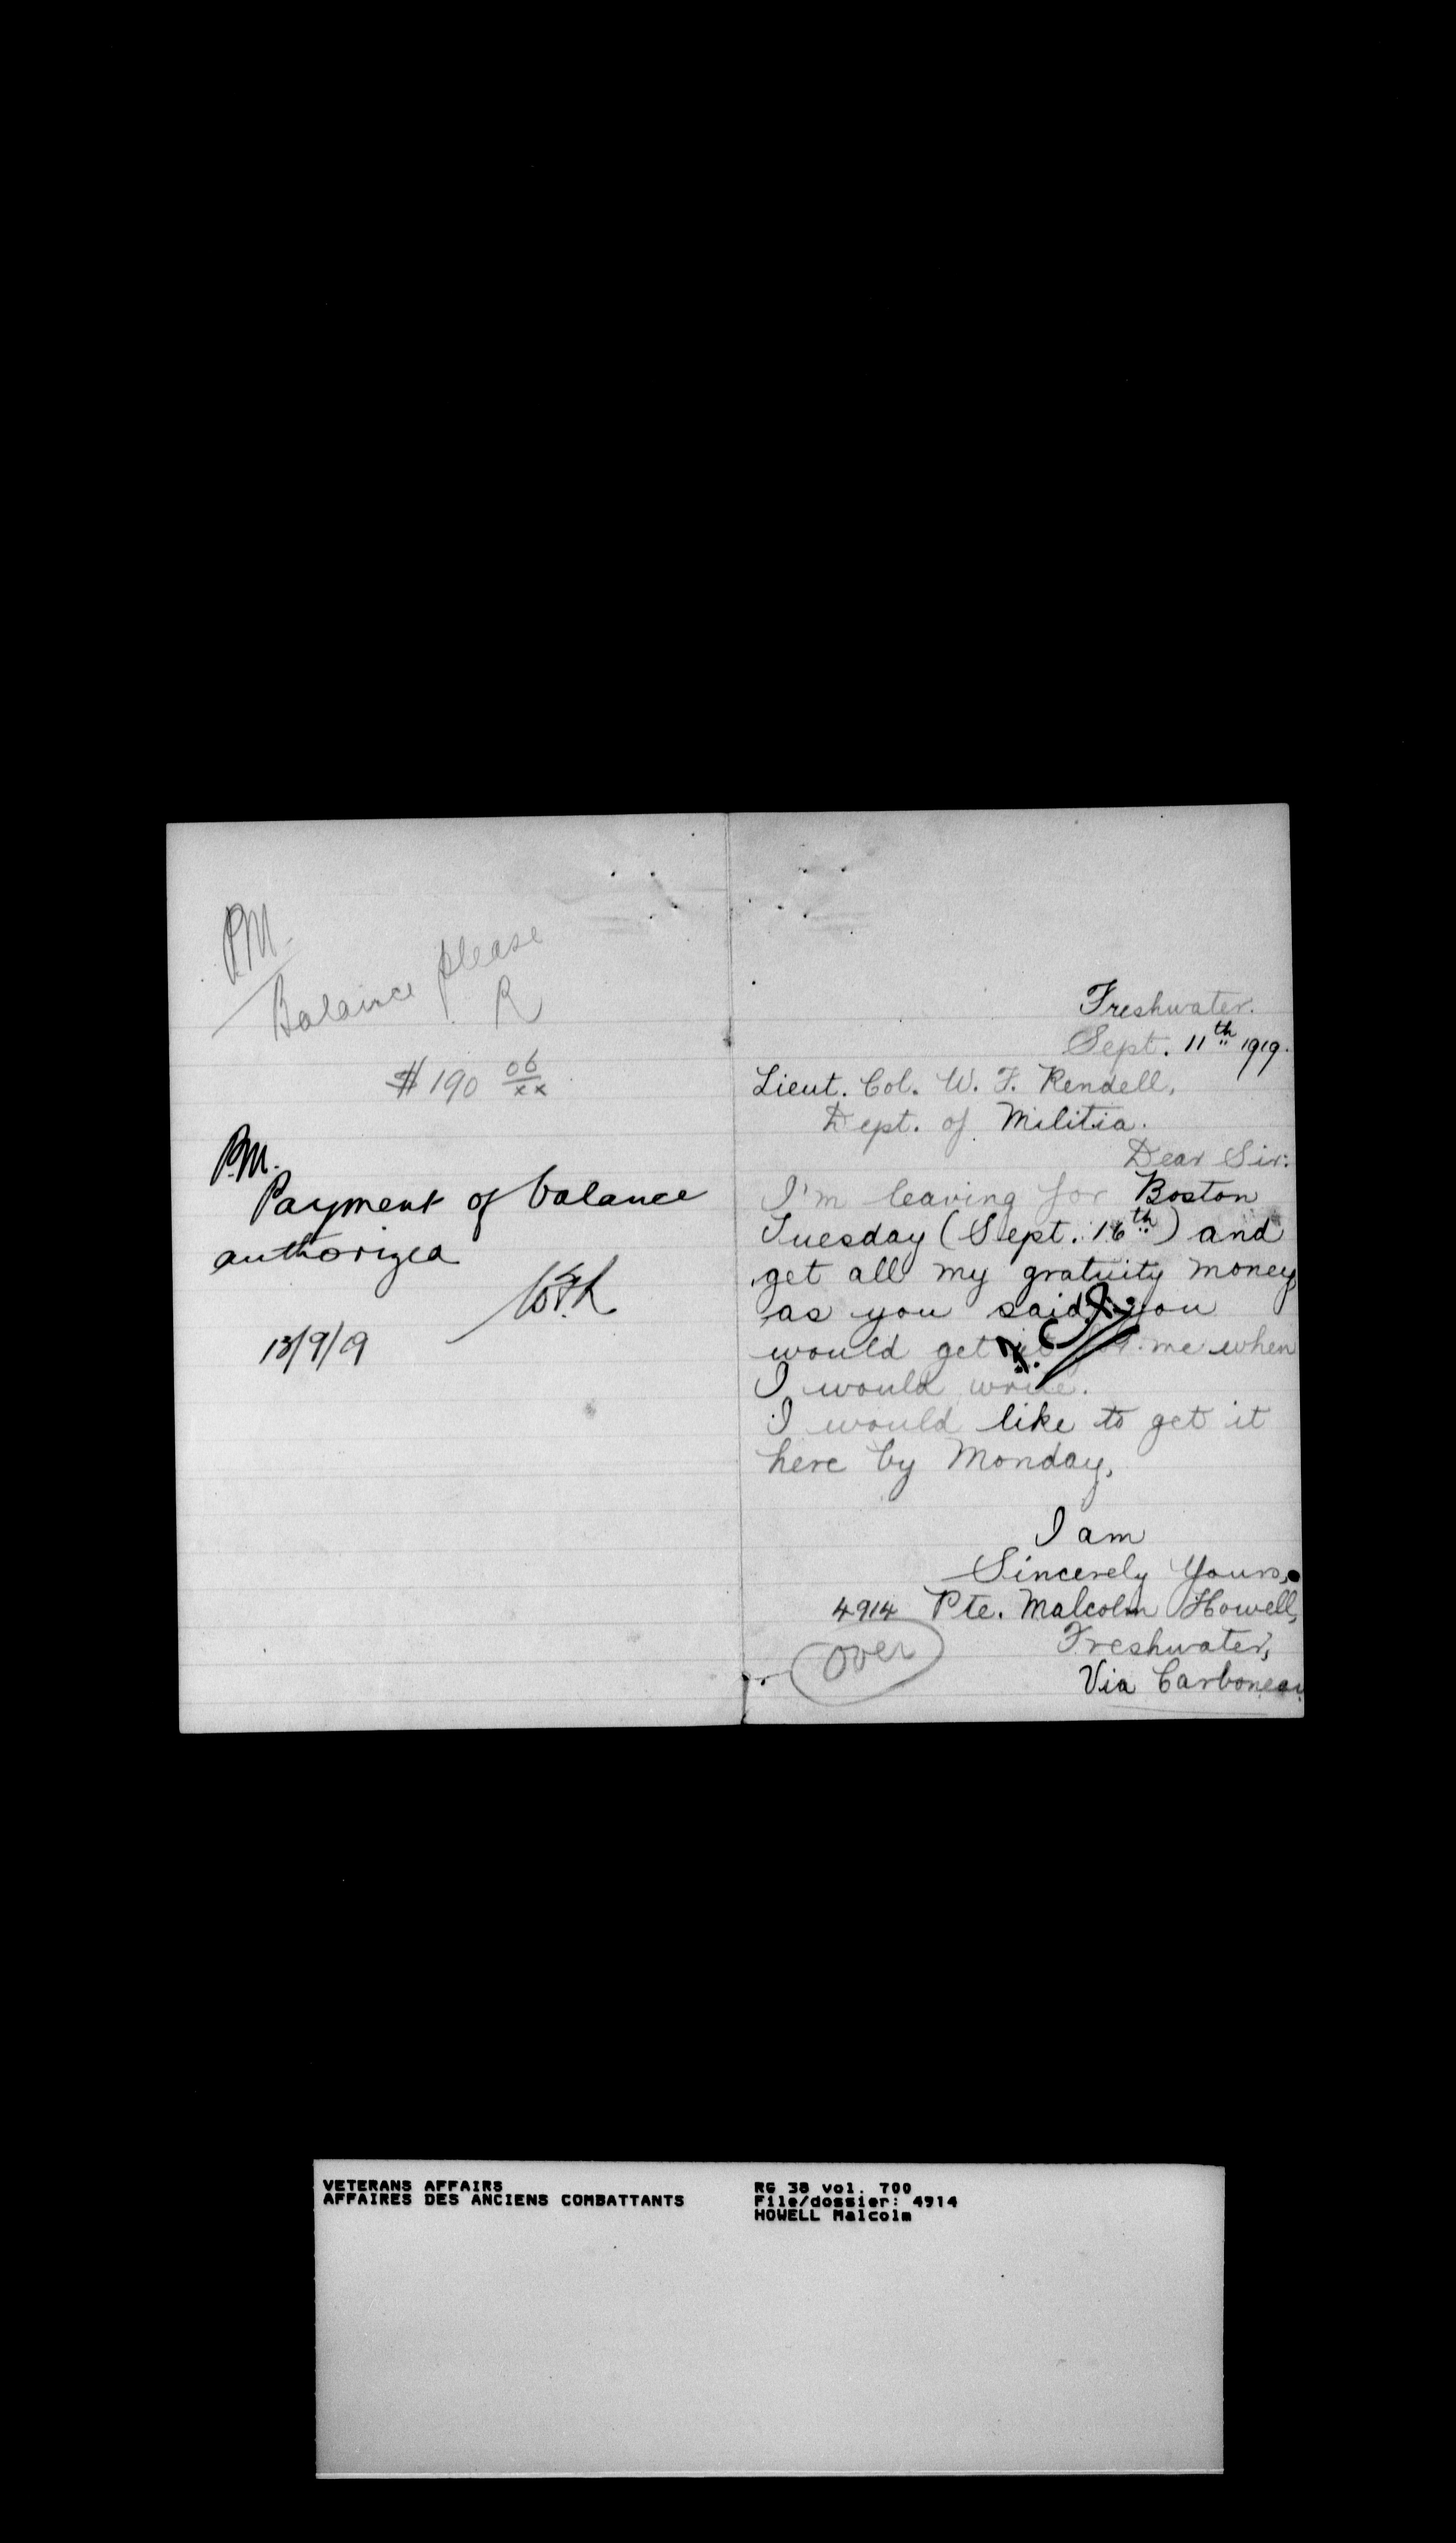 P.M.
Balance please
R
$190 06/xx
P.M.
Payment of balance
authorized
13/9/19
Freshwater.
Sept. 11th 1919.
Lieut. Col. W. F. Rendell,
Dept. of Militia.
Dear Sir:
I'm leaving for Boston
Tuesday (Sept. 16th) and
get all my gratuity money
as you said you
would get it for me when
I would write.
I would like to get it
here by Monday,
I am
Sincerely Yours,
4914 Pte. Malcolm Howell,
Freshwater,
Via Carbonear
over
VETERANS AFFAIRS
AFFAIRES DES ANCIENS COMBATTANTS
RG 38 vol. 700
File/dossier: 4914
HOWELL Malcolm